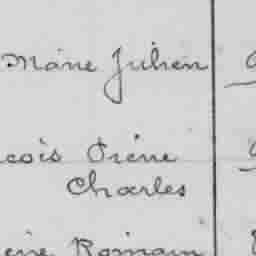 Marie Julien
cois Irène
Charles
Romain